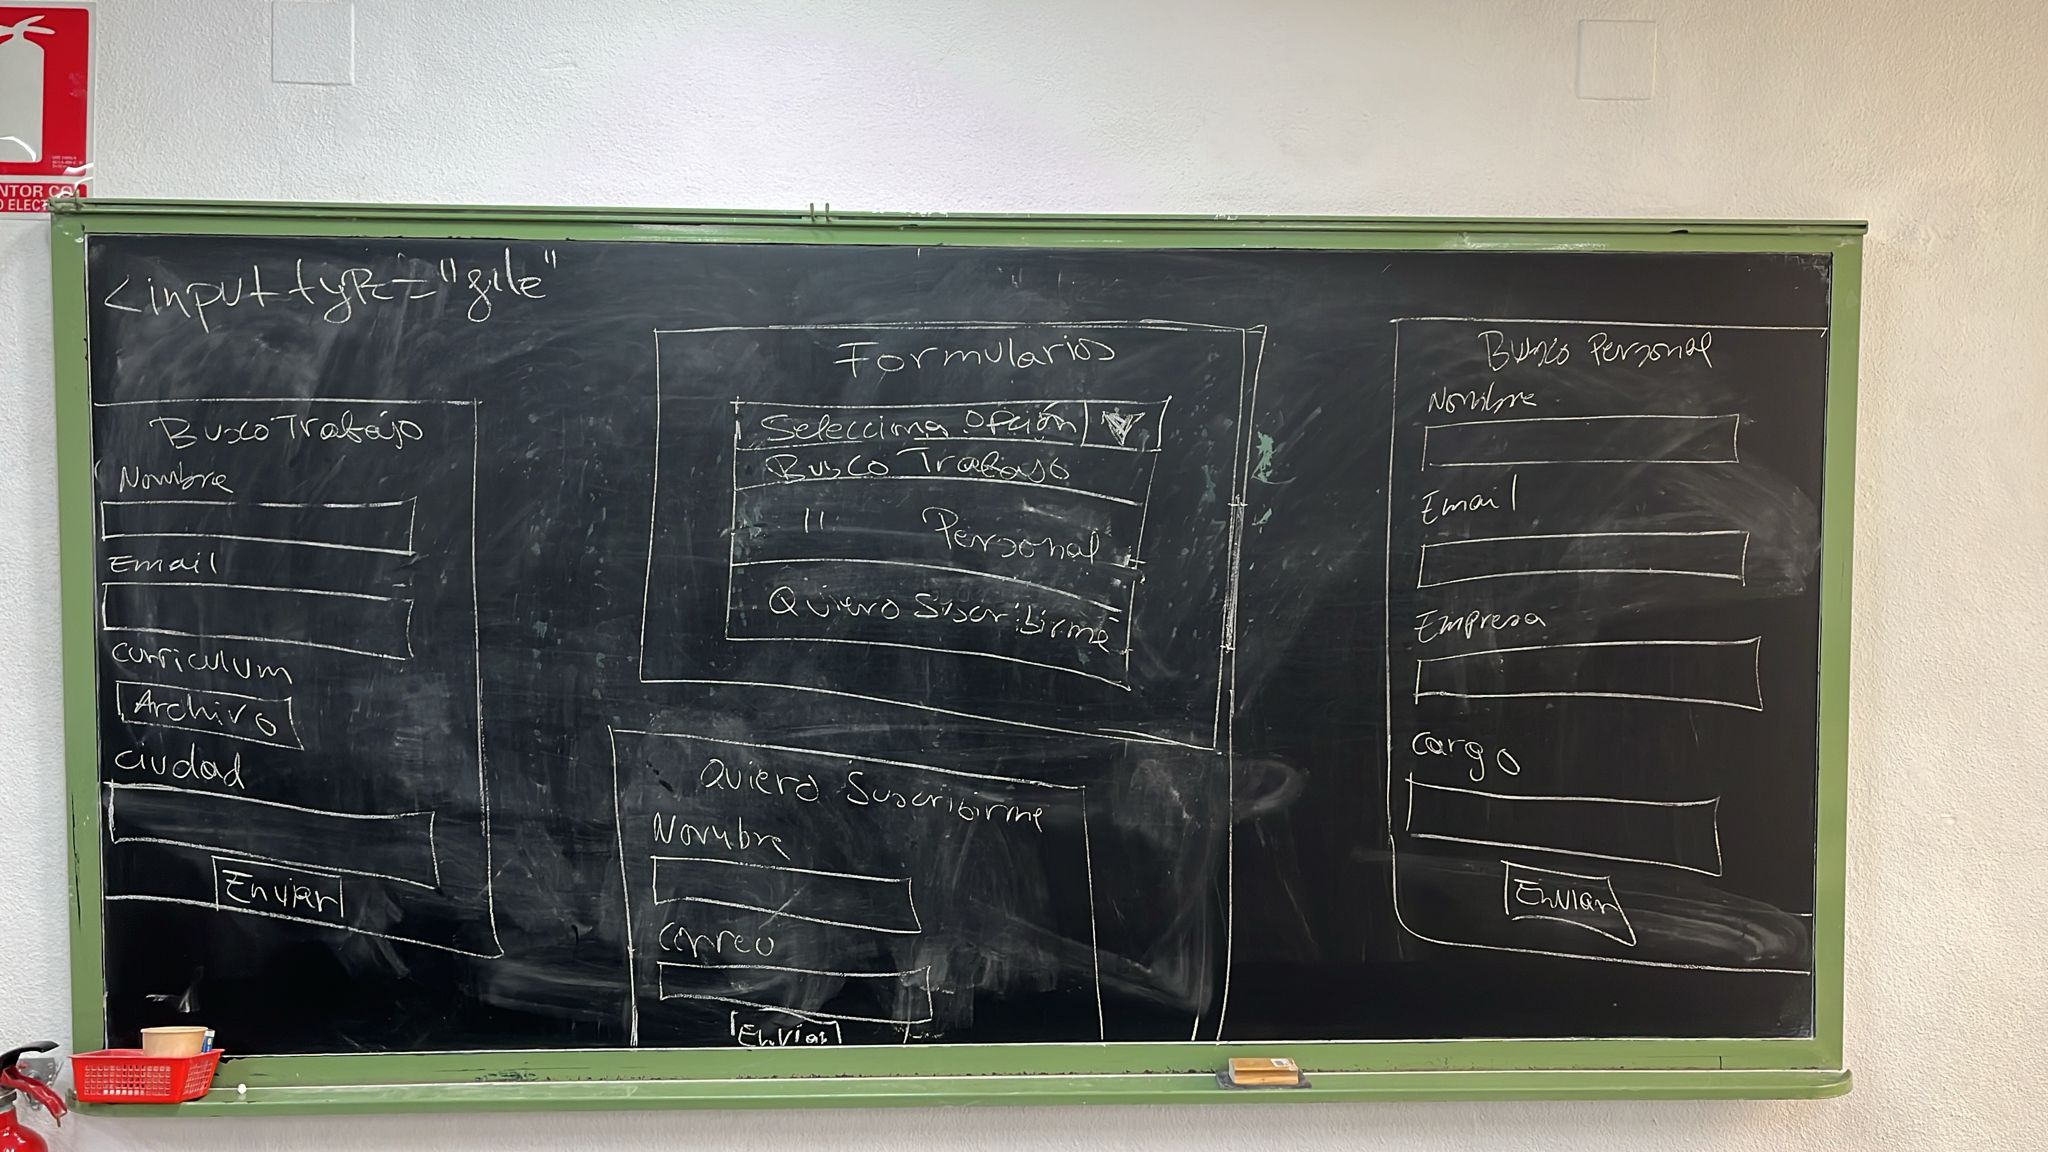 NTOR CO
O ELECT
<input type="file"
Busco Trabajo
Nombre
Email
curriculum
Archivo
ciudad
Enviar
Formularios
Selecciona Opción
Busco Trabajo
" Personal
Quiero Suscribirme
Quiero Suscribirme
Nombre
Correo
Enviar
Busco Personal
Nombre
Email
Empresa
Cargo
Enviar